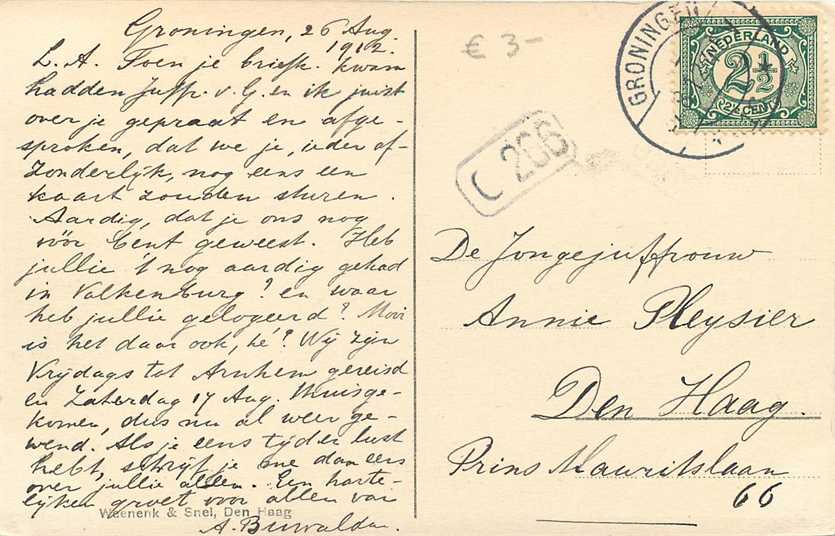 Groningen, 26 Aug.
1912.
L. A. Toen je briefk. kwam
hadden Juffr. v. G. en ik juist
over je gepraat en afge-
sproken, dat we je, ieder af-
zonderlijk, nog eens een
kaart zouden sturen.
Aardig, dat je ons nog
vóór bent geweest. Heb
jullie 't nog aardig gehad
in Valkenburg? en waar
heb jullie gelogeerd? Mooi
is het daar ook, hè? Wij zijn
Vrijdags tot Arnhem gereisd
en Zaterdag 17 Aug. thuisge-
komen, dus nu al weer ge-
wend. Als je eens tijd en lust
hebt, schrijf je me dan eens
over jullie allen. Een harte-
lijken groet voor allen van
A.
Weenenk & Snel, Den Haag
€ 3-
C 266
GRONINGEN
NEDERLAND
2½
2½ CENT
De Jongejuffrouw
Annie Pleysier
Den Haag.
Prins Mauritslaan
66